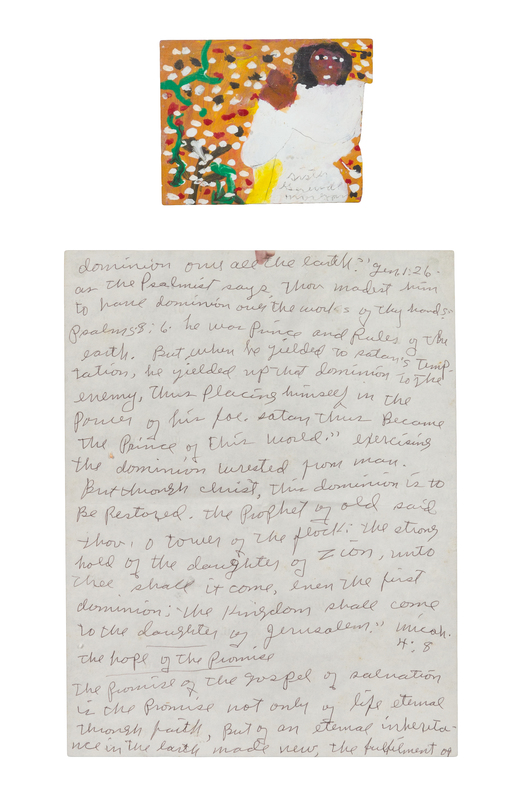 sister
Gertrude
morgan
dominion over all the earth." gen. 1:26.
as the Psalmist says, thou madest him
to have dominion over the works of thy hands.
Psalms 8:6. he was Prince and Ruler of the
earth. But, when he yielded to satan's temp-
tation, he yielded up that dominion to the
enemy, thus Placing himself in the
Power of his foe. satan thus Became
the Prince of this world." exercising
the dominion wrested from man.
But through christ, this dominion is to
Be Restored. the Prophet of old said
thou, O tower of the flock; the strong
hold of the daughter of Zion, unto
thee shall it come, even the first
dominion: "the kingdom shall come
to the daughter of Jerusalem." micah.
4:8
the hope of the Promise
The Promise of the gospel of salvation
is the Promise not only of life eternal
through faith, But of an eternal inherita-
nce in the earth made new, the fulfilment of